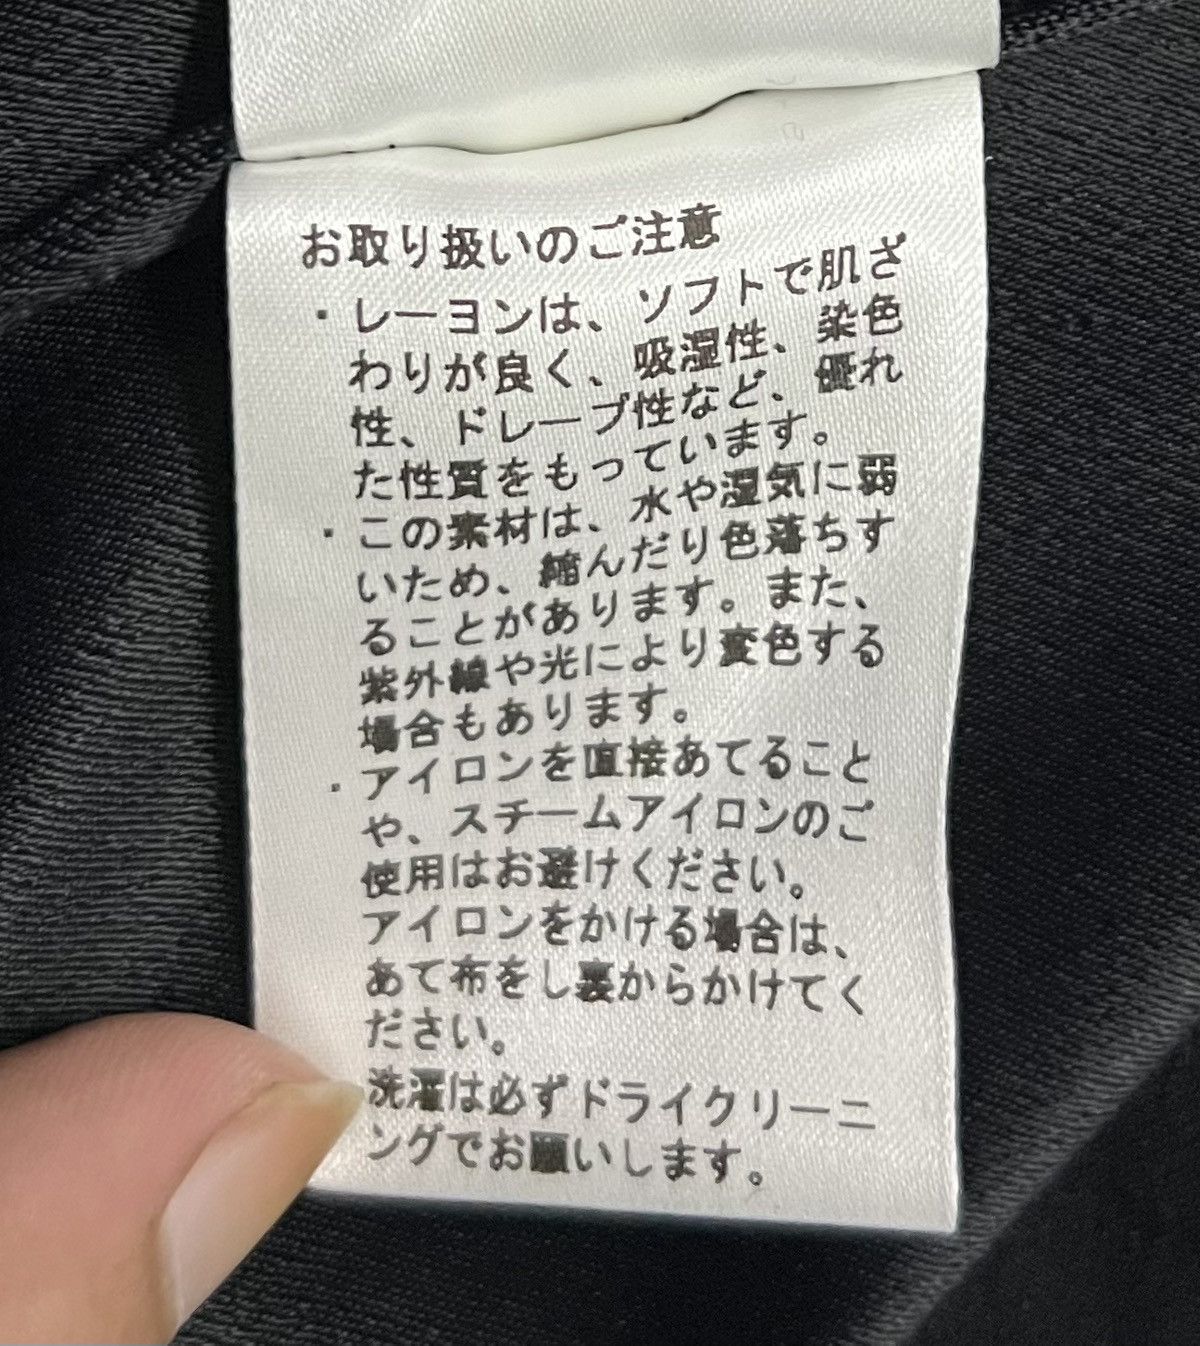 お取り扱いのご注意
・レーヨンは、ソフトで肌ざ
わりが良く、吸湿性、染色
性、ドレープ性など、優れ
た性質をもっています。
・この素材は、水や湿気に弱
いため、縮んだり色落ちす
ることがあります。また、
紫外線や光により変色する
場合もあります。
・アイロンを直接あてること
や、スチームアイロンのご
使用はお避けください。
アイロンをかける場合は、
あて布をし裏からかけてく
ださい。
洗濯は必ずドライクリーニ
ングでお願いします。